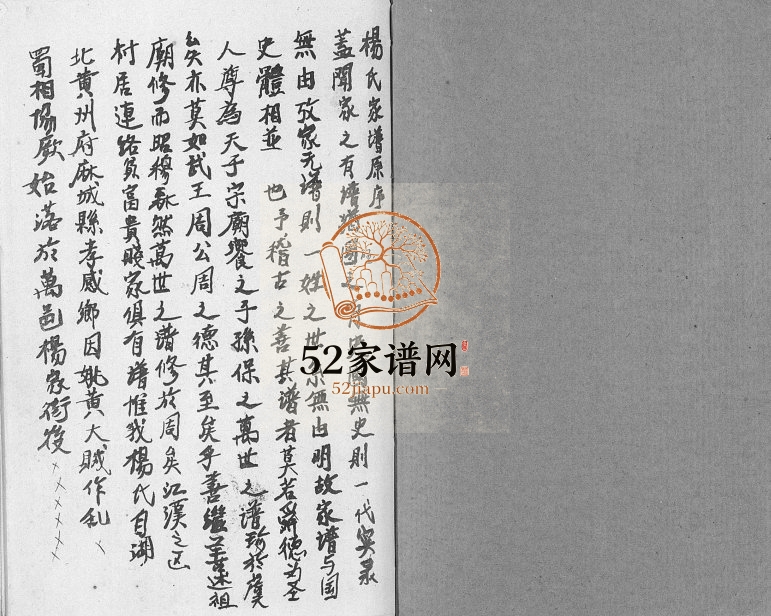 楊氏家譜原序
蓋聞家之有譜猶國之有史國無史則一代实录
無由攷家无谱則一姓之世系無由明故家譜与国
史體相並 也予稽古之善其譜者莫若舜德为圣
人尊為天子宗廟饗之子孫保之萬世之譜珍於虞
矣亦莫如武王周公周之德其至矣乎善繼善述祖
廟修而昭穆秩然萬世之譜修於周矣江漢之区
村居連络负富貴賤家俱有譜惟我楊氏自湖
北黄州府麻城縣孝感鄉因姚黄大賊作乱
蜀相陽厥始落於萬邑楊家街後××××××
52家谱网
52jiapu.com